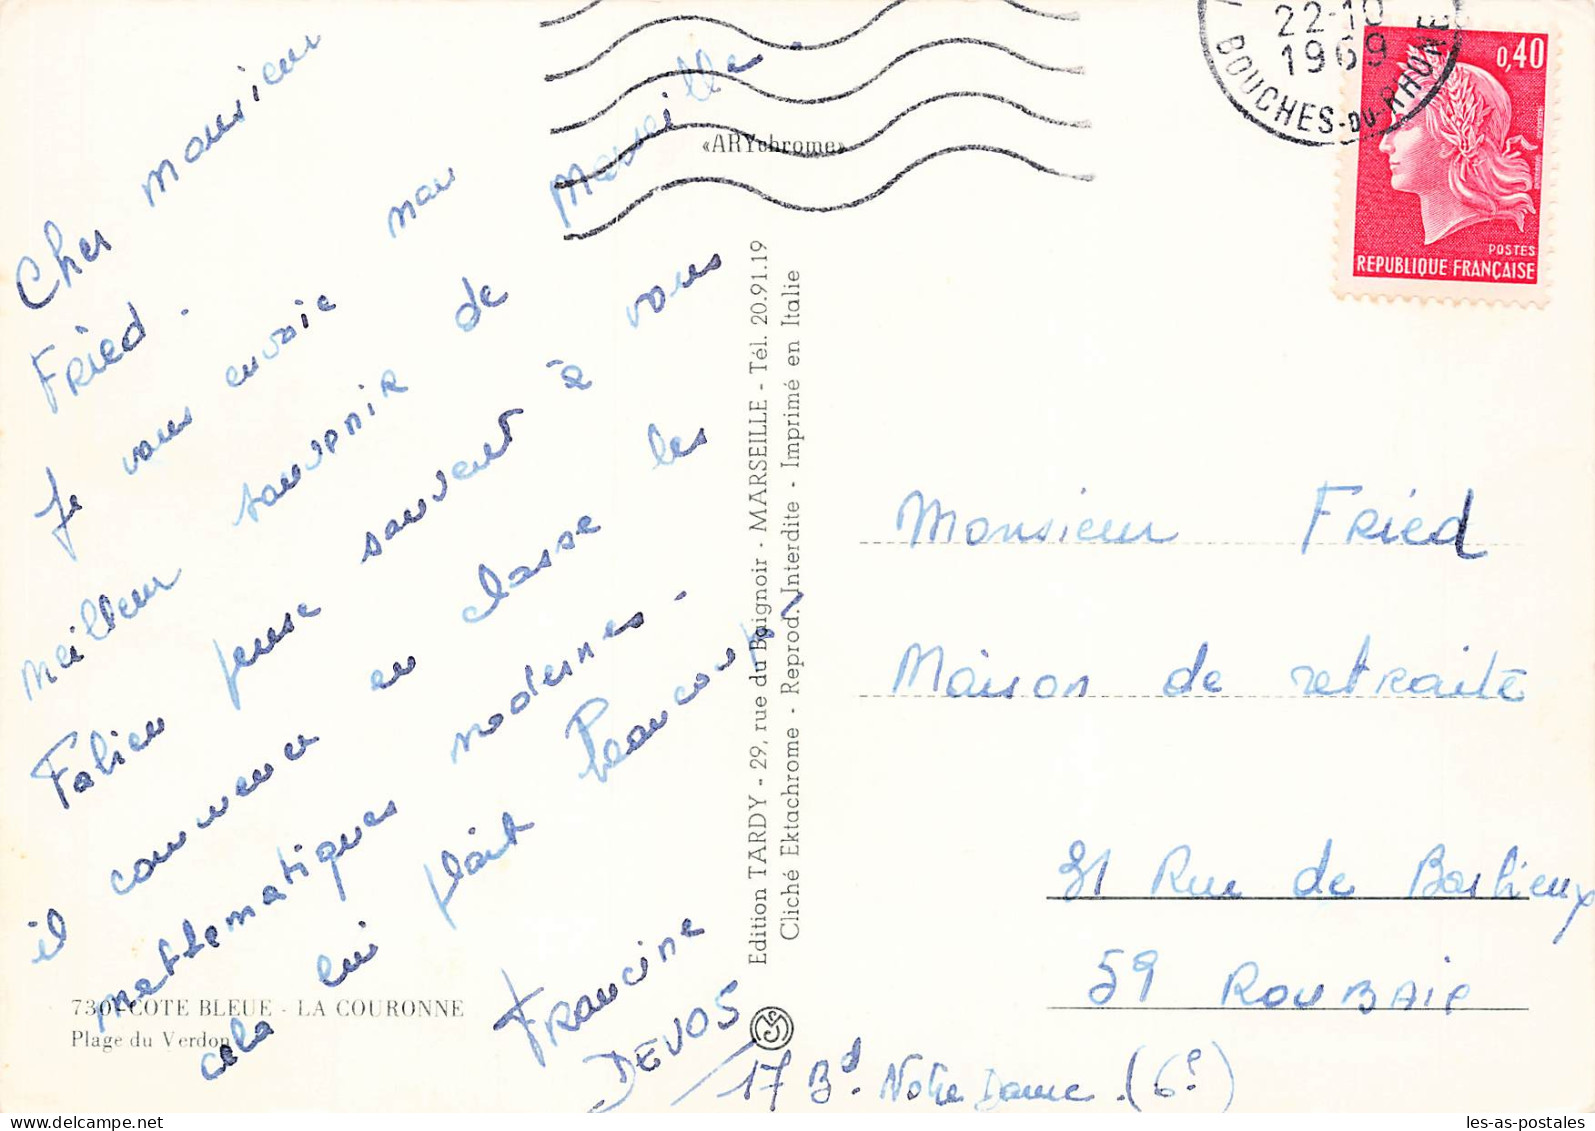 Cher Monsieur
Fried.
Je vous envoie mon
meilleur souvenir de Marseille.
Fabien pense souvent à vous
il commence en classe les
mathematiques modernes.
cela lui plait beaucoup
Francine
DEVOS
17 Bd. Notre Dame. (6e)
«ARYchrome»
22-10
1969
BOUCHES-DU-RHONE
0,40
POSTES
REPUBLIQUE FRANÇAISE
Edition TARDY - 29, rue du Baignoir - MARSEILLE - Tél. 20.91.19
Cliché Ektachrome - Reprod. Interdite - Imprimé en Italie
Monsieur Fried
Maison de retraite
31 Rue de Barbieux
59 ROUBAIX
730 - COTE BLEUE - LA COURONNE
Plage du Verdon
les-as-postales